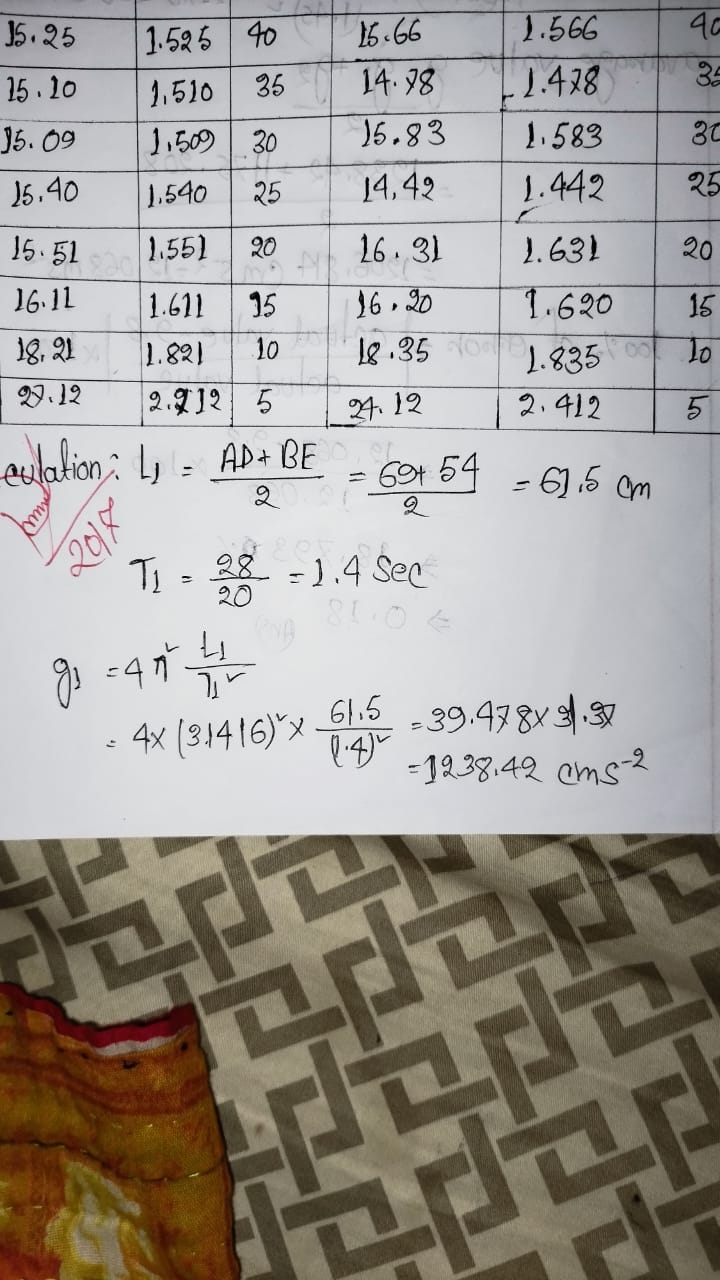 15.25 1.525 40 15.66 1.566 40
15.10 1.510 35 14.78 1.478 35
15.09 1.509 30 15.83 1.583 30
15.40 1.540 25 14.42 1.442 25
15.51 1.551 20 16.31 1.631 20
16.11 1.611 15 16.20 1.620 15
18.21 1.821 10 18.35 1.835 10
27.12 2.712 5 24.12 2.412 5
culation: L₁ = (AD + BE)/2 = (69 + 54)/2 = 61.5 cm
2017
T₁ = 28/20 = 1.4 Sec
g₁ = 4π² L₁/T₁²
= 4 × (3.1416)² × 61.5/(1.4)² = 39.478 × 31.37
= 1238.42 cms⁻²